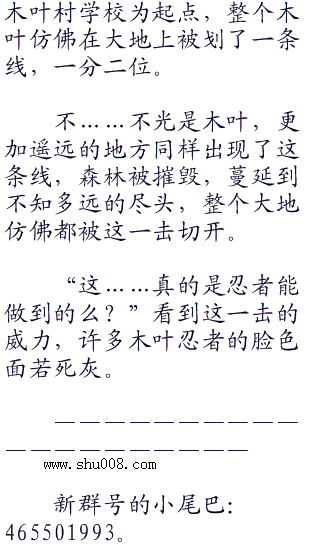 木叶村学校为起点，整个木
叶仿佛在大地上被划了一条
线，一分二位。
不……不光是木叶，更
加遥远的地方同样出现了这
条线，森林被摧毁，蔓延到
不知多远的尽头，整个大地
仿佛都被这一击切开。
“这……真的是忍者能
做到的么？”看到这一击的
威力，许多木叶忍者的脸色
面若死灰。
－－－－－－－－－－
－－－－－－－－－－
www.shu008.com
新群号的小尾巴：
465501993。